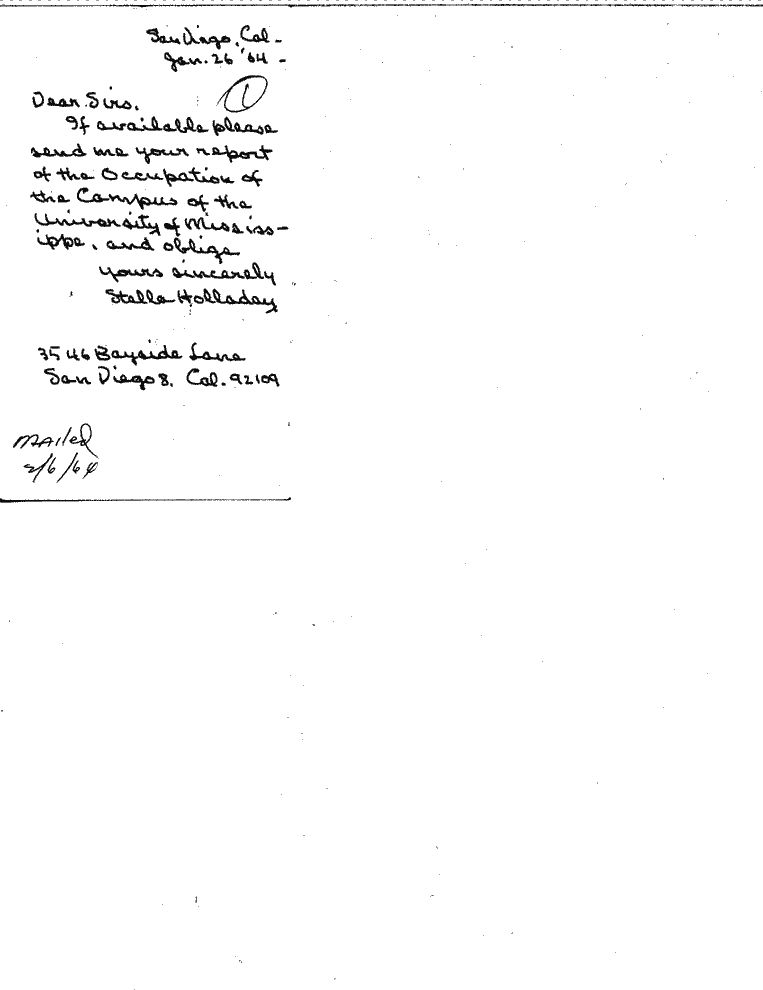 San Diego, Cal -
Jan. 26 '64 -
1
Dear Sirs.
If available please
send me your report
of the Occupation of
the Campus of the
University of Mississ-
ippe, and oblige
yours sincerely
Stella Holladay
3546 Bayside Lane
San Diego 8, Cal. 92109
MAiled
2/6/64